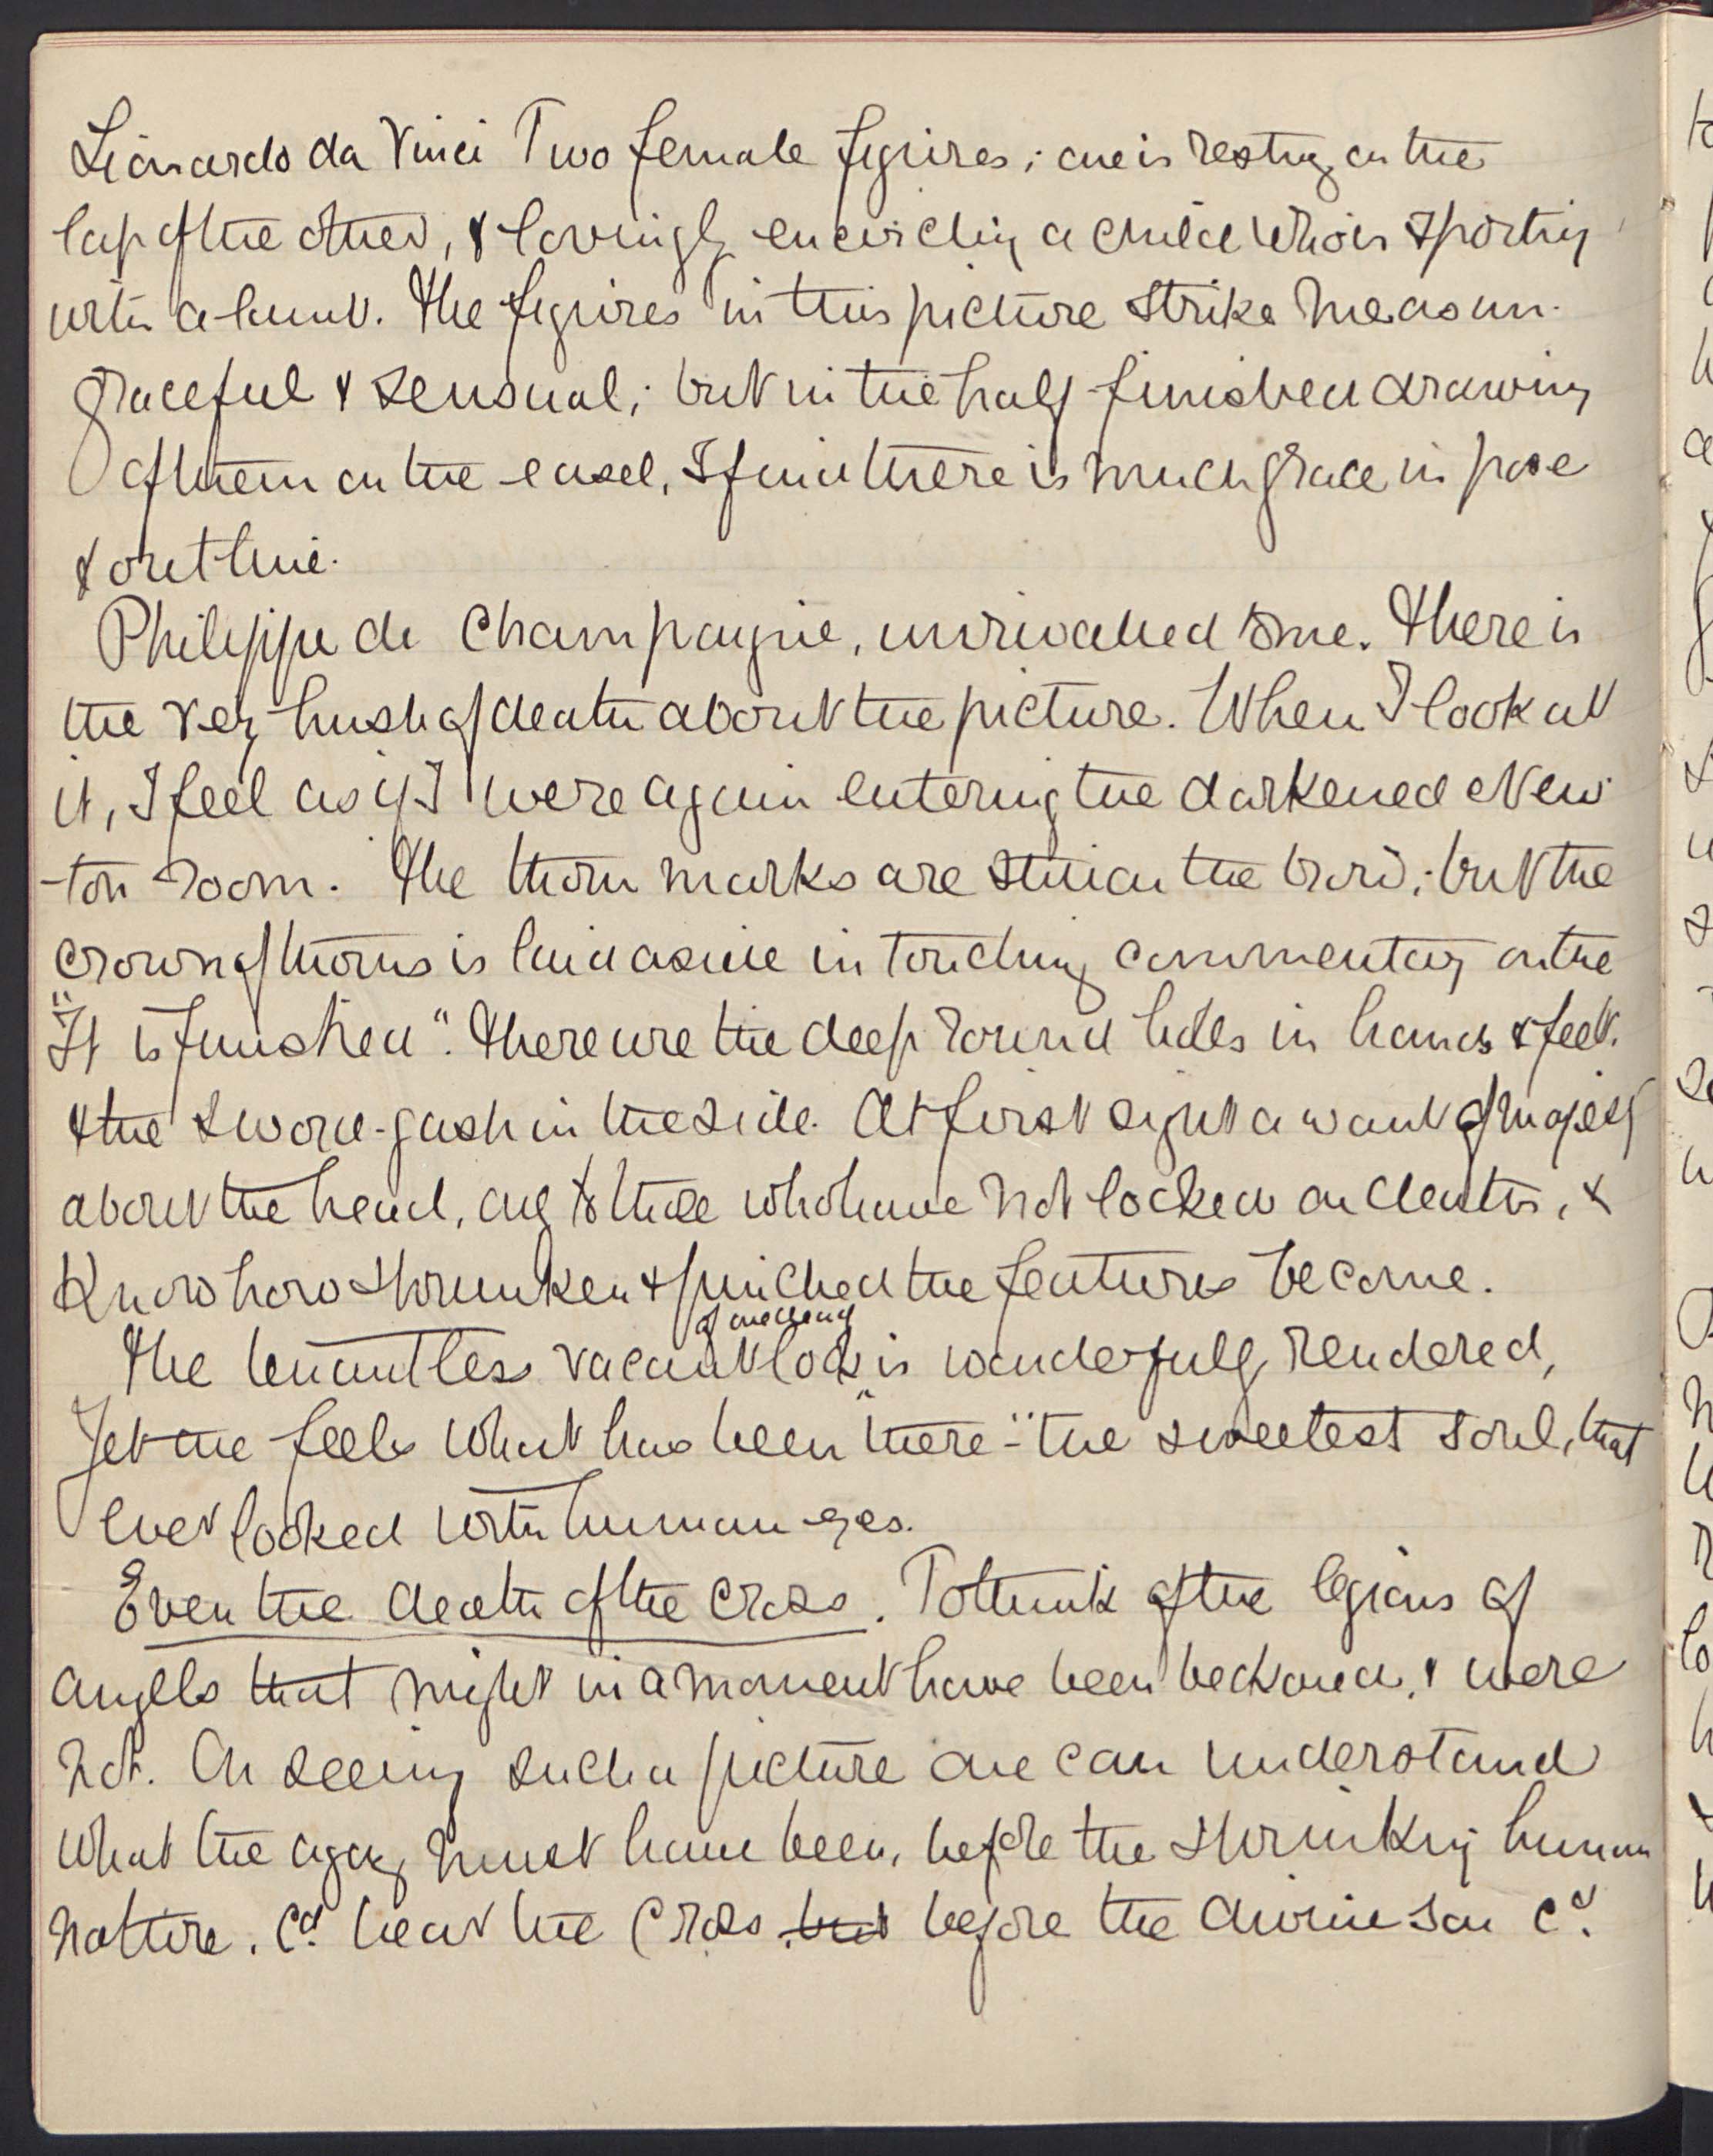 Lionardo da Vinci Two female figures; one is resting on the
lap of the other, & lovingly encircling a child who is sporting
with a lamb. The figures in this picture strike me as un-
graceful & sensual; but in the half-finished drawing
of them on the easel, I find there is much grace in pose
& outline.
Philippe de Champagne, unrivalled to me. There is
the very hush of death about the picture. When I look at
it, I feel as if I were again entering the darkened New
-ton room. The thorn marks are still on the brow; but the
crown of thorns is laid aside in touching commentary on the
"It is finished". There are the deep round holes in hands & feet.
& the sword-gash in the side. At first sight a want of majesty
about the head, only to those who have not looked on death, &
know how shrunken & pinched the features become.
of one dead
The tenantless vacant look is wonderfully rendered,
Yet one feels what has been "there" - the sweetest soul, that
ever looked with human eyes.
Even the death of the cross. To think of the legions of
angels that might in a moment have been beckoned, & were
not. On seeing such a picture one can understand
what the agony must have been, before the shrinking human
nature. cd. bear the cross but before the divine son cd.